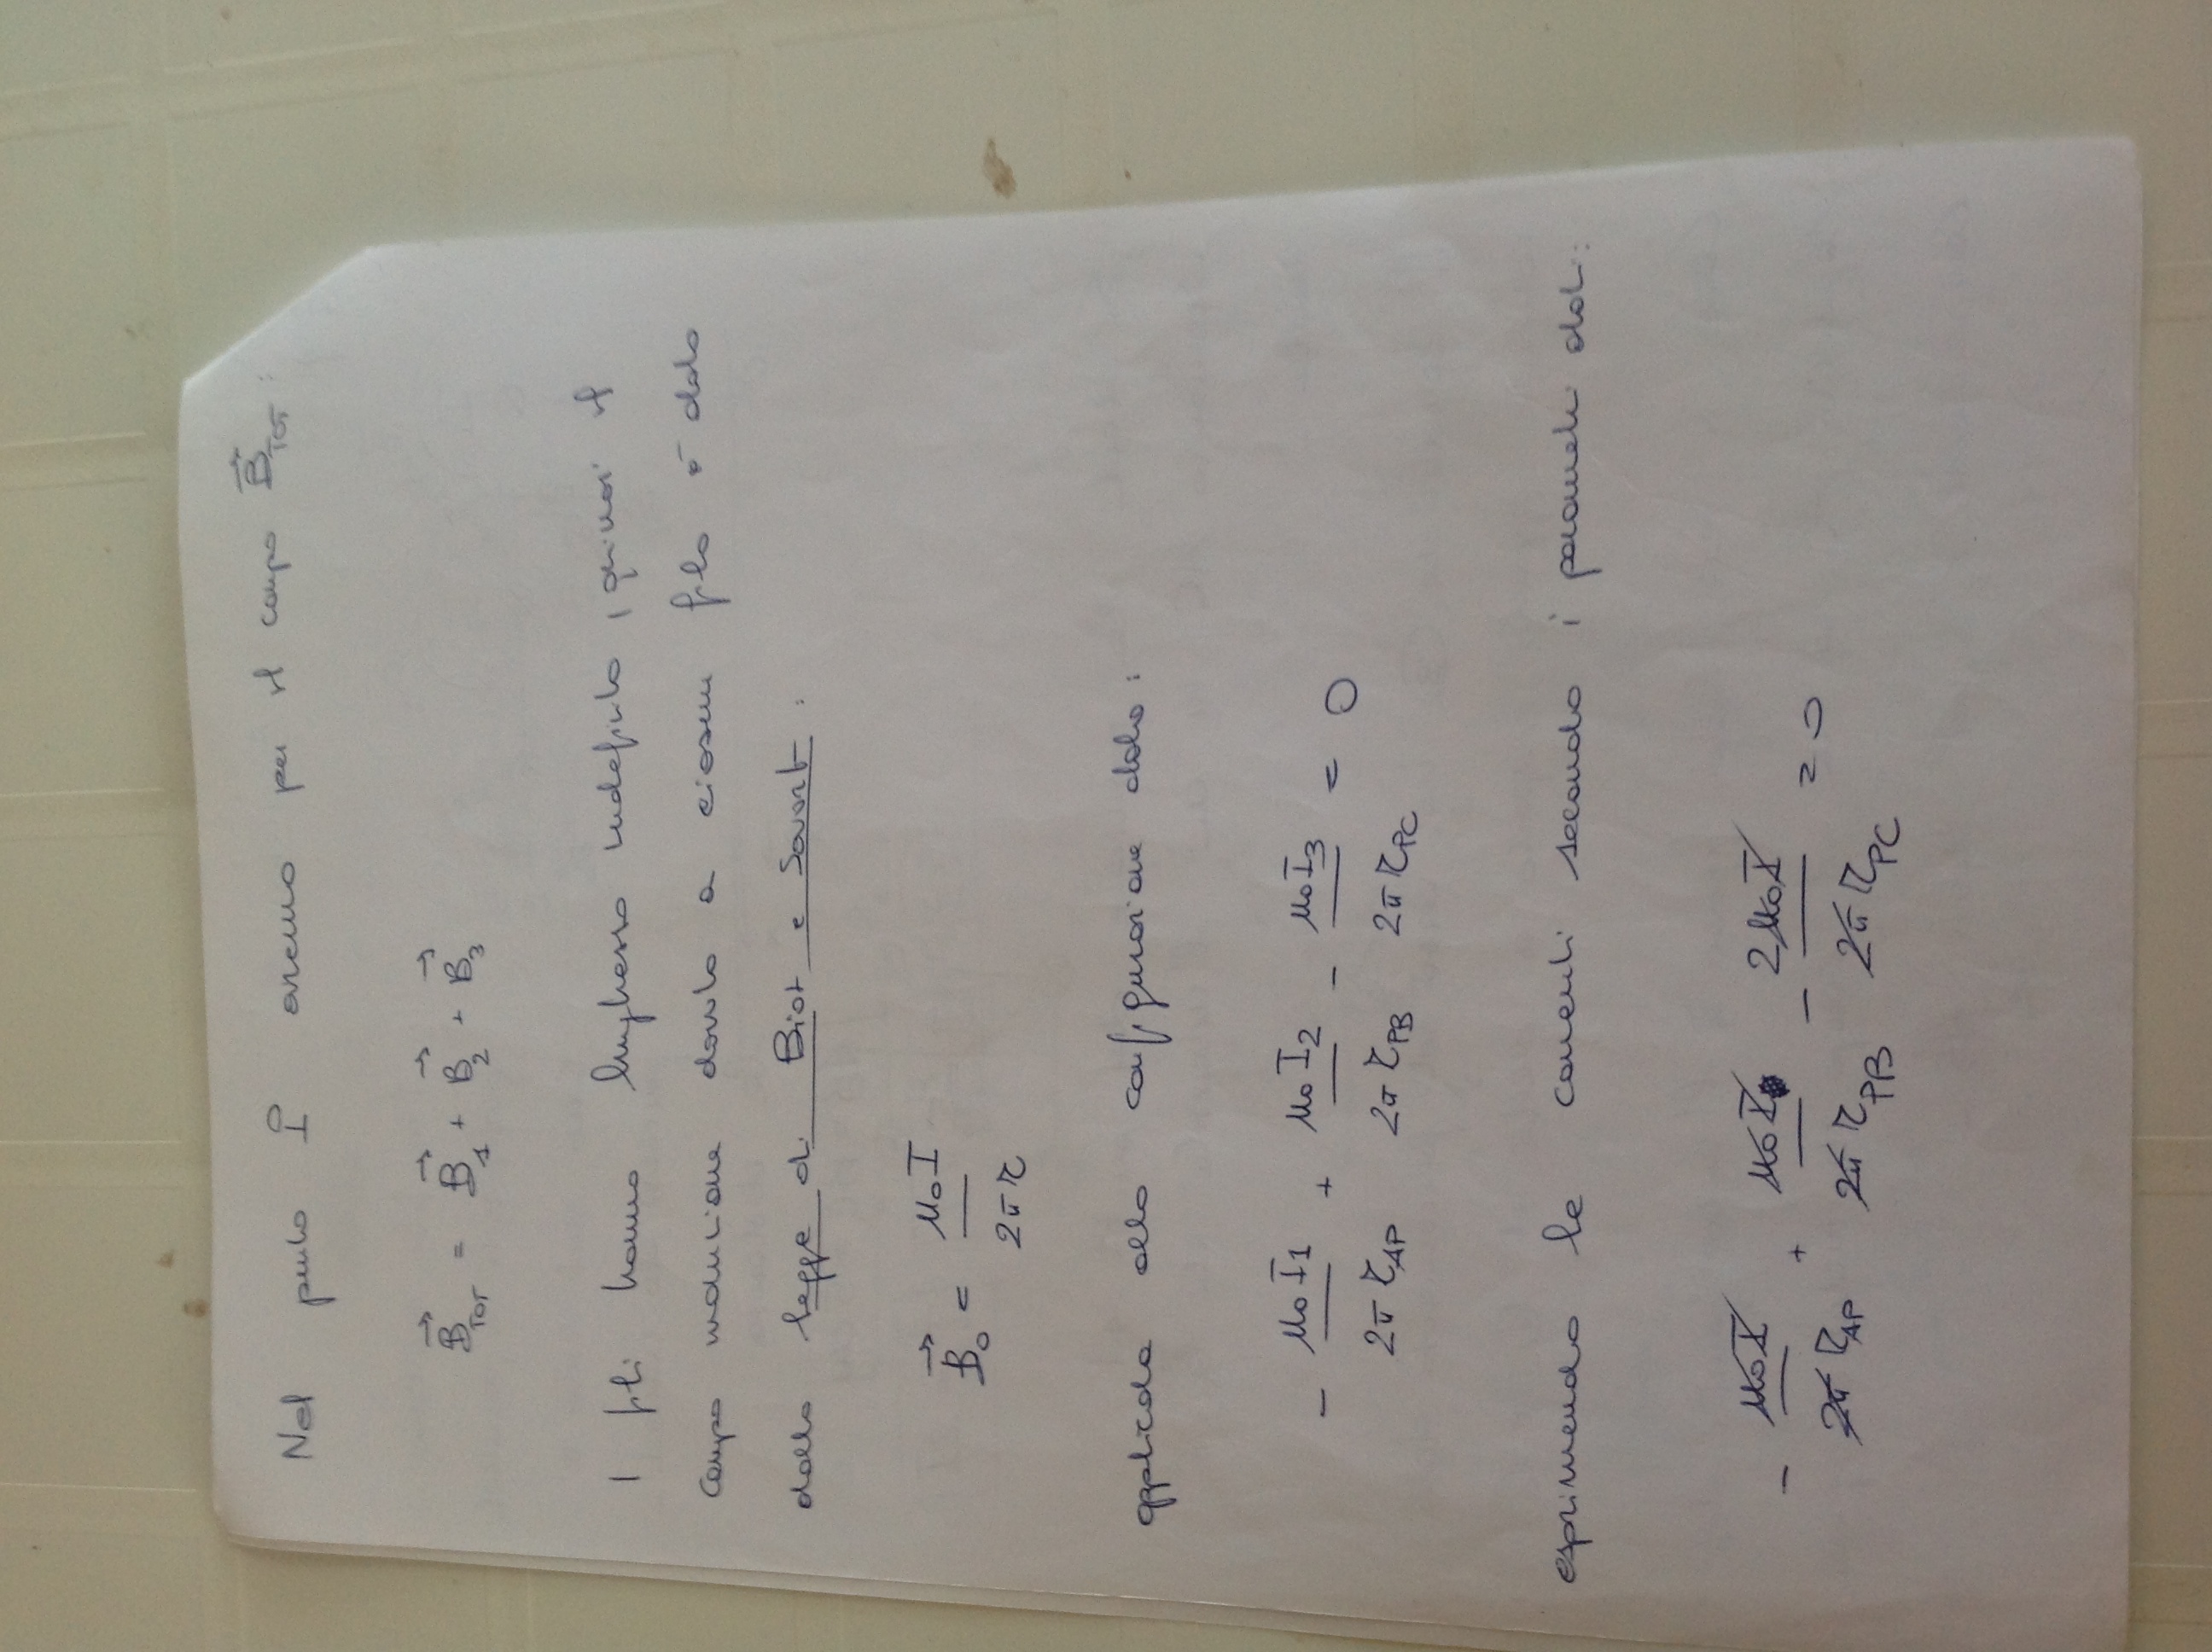 Nel punto P avremo per il campo B⃗TOT:
B⃗TOT = B⃗1 + B⃗2 + B⃗3
I fili hanno lunghezza indefinita, quindi il
campo induzione dovuto a ciascun filo è dato
dalla legge di Biot e Savart:
B⃗0 = μ0I / 2πr
applicata alla configurazione data:
- μ0I1 / 2π rAP + μ0I2 / 2π rPB - μ0I3 / 2π rPC = 0
esprimendo le correnti secondo i parametri dati:
- μ0I / 2π rAP + μ0I / 2π rPB - 2μ0I / 2π rPC = 0